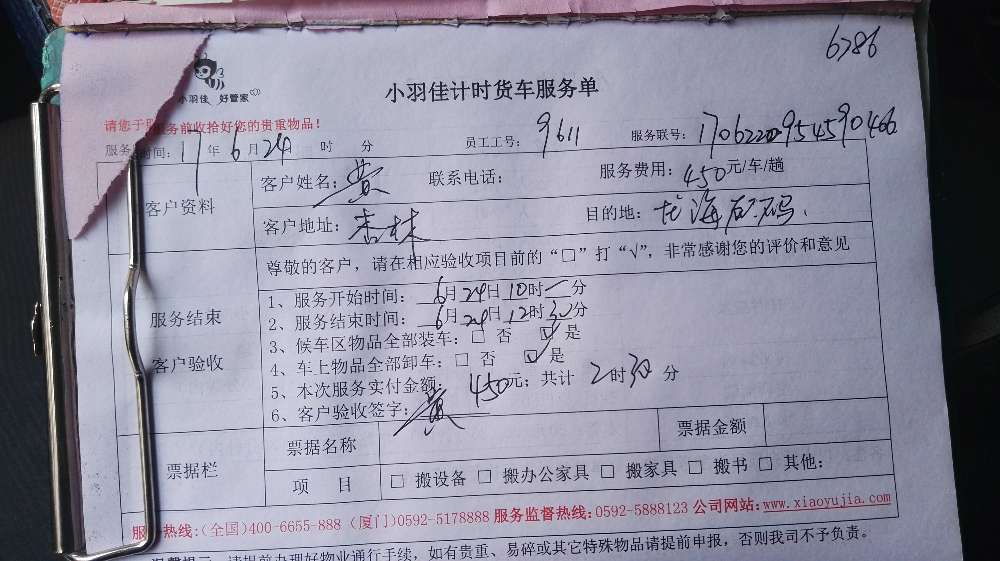 6786
小羽佳 好管家
小羽佳计时货车服务单
请您于 服务前收拾好您的贵重物品！
服务 时间：17年6月24日 时 分 员工工号：9611 服务联号：
客户资料
客户姓名：黄 联系电话： 服务费用：450元/车/趟
客户地址：杏林 目的地：龙海石码
服务结束
客户验收
尊敬的客户，请在相应验收项目前的“□”打“√”，非常感谢您的评价和意见
1、服务开始时间：6月24日10时 分
2、服务结束时间：6月24日12时30分
3、候车区物品全部装车：□ 否 ☑ 是
4、车上物品全部卸车：□ 否 ☑ 是
5、本次服务实付金额： 450元；共计 2时30分
6、客户验收签字：黄
票据栏
票据名称 票据金额
项 目 □ 搬设备 □ 搬办公家具 □ 搬家具 □ 搬书 □ 其他：
服务热线：(全国)400-6655-888 (厦门)0592-5178888 服务监督热线：0592-5888123 公司网站：www.xiaoyujia.com
请提前办理好物业通行手续，如有贵重、易碎或其它特殊物品请提前申报，否则我司不予负责。